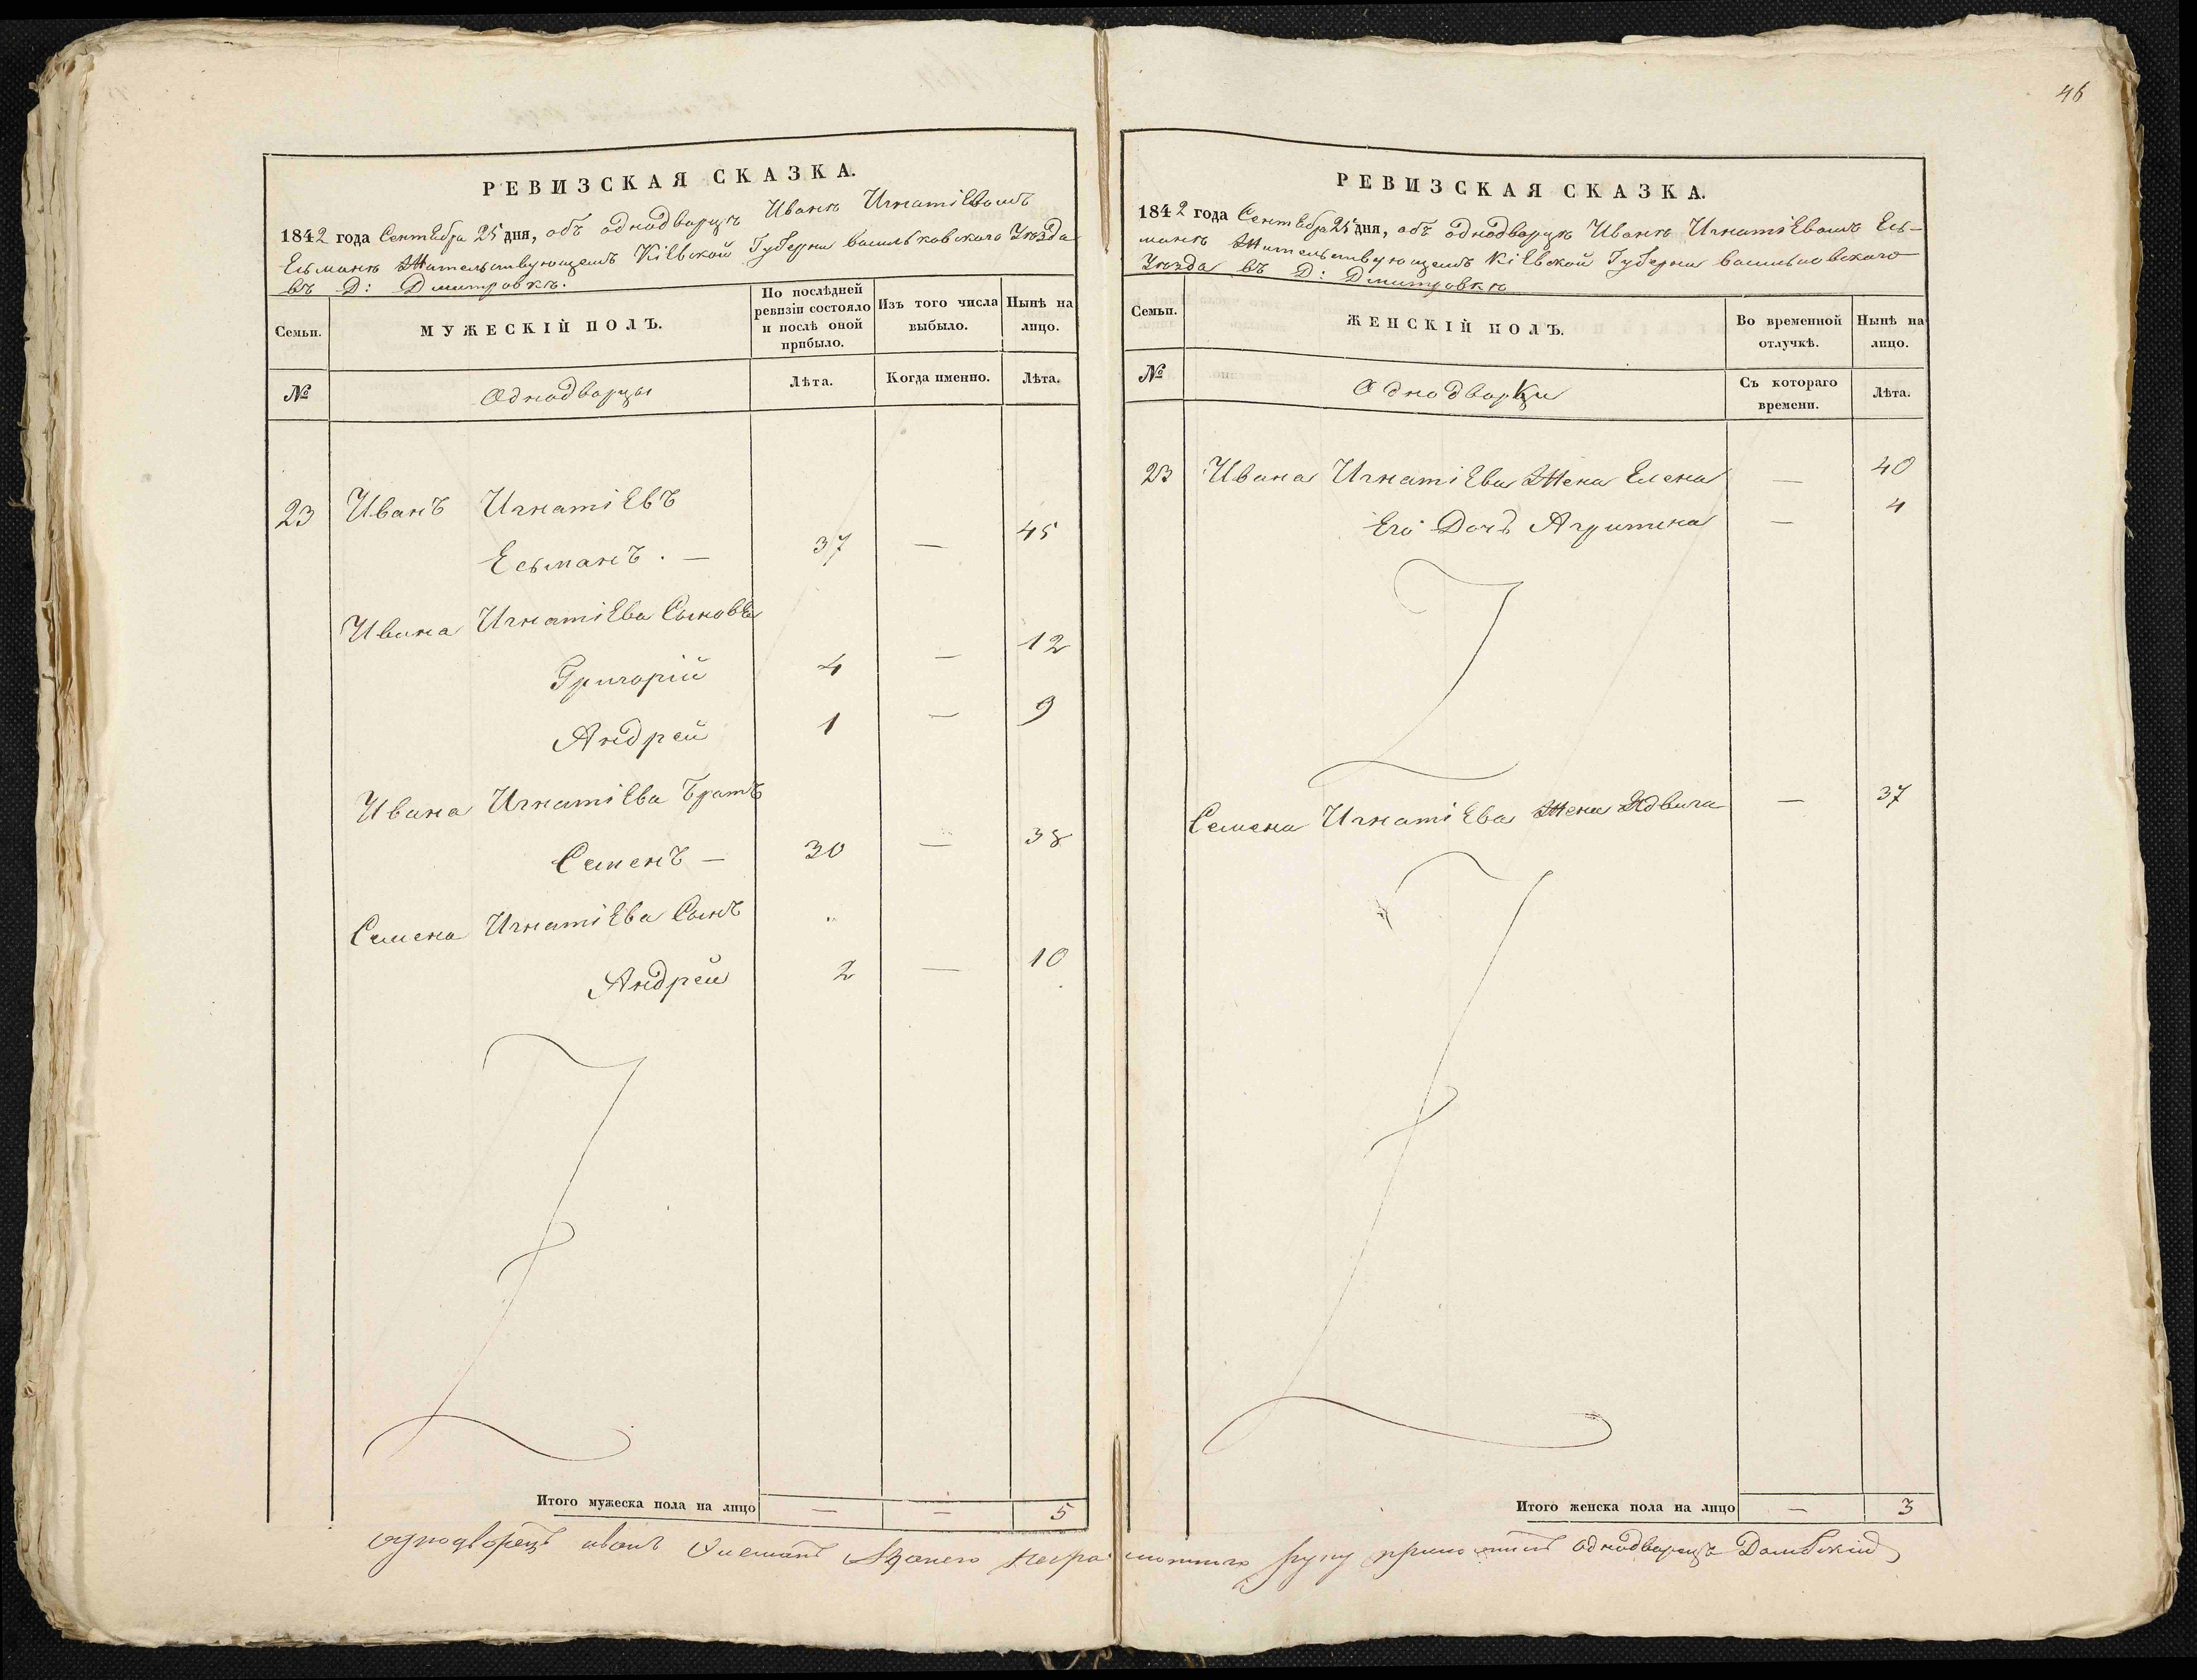 46
РЕВИЗСКАЯ СКАЗКА.
1842 года Сентебра 25 дня, объ однодворцѣ Иванѣ Игнатіевомъ
Есьманѣ Жительствующемъ Кіевской Губерни васильковского Уѣзда
въ Д: Дмитровкѣ.
Семьи.
МУЖЕСКІЙ ПОЛЪ.
По послѣдней
ревизіи состояло
и послѣ оной
прибыло.
Изъ того числа
выбыло.
Нынѣ на
лицо.
№
Однодворцы
Лѣта.
Когда именно.
Лѣта.
23 Иванъ Игнатіевъ
Есьманъ . — 37 — 45
Ивана Игнатіева Сыновъа
Григорій 4 — 12
Андрей 1 — 9
Ивана Игнатіева Братъ
Семенъ — 30 — 38
Семена Игнатіева Сынъ
Андрей 2 — 10
Итого мужеска пола на лицо — — 5
РЕВИЗСКАЯ СКАЗКА.
1842 года Сентебра 25 дня, объ однодворцѣ Иванѣ Игнатіевомъ Есь-
манѣ Жительствующемъ Кіевской Губерни васильковского
Уѣзда въ Д: Дмитровкѣ
Семьи.
ЖЕНСКІЙ ПОЛЪ.
Во временной
отлучкѣ.
Нынѣ на
лицо.
№
Однодворки
Съ котораго
времени.
Лѣта.
23 Ивана Игнатіева Жена Елена — 40
Его Дочъ Агритина — 4
Семена Игнатіева Жена Ядвига — 37
Итого женска пола на лицо — 3
однодворецъ иванъ неграмотного руку приложилъ однодворецъ Домбскій